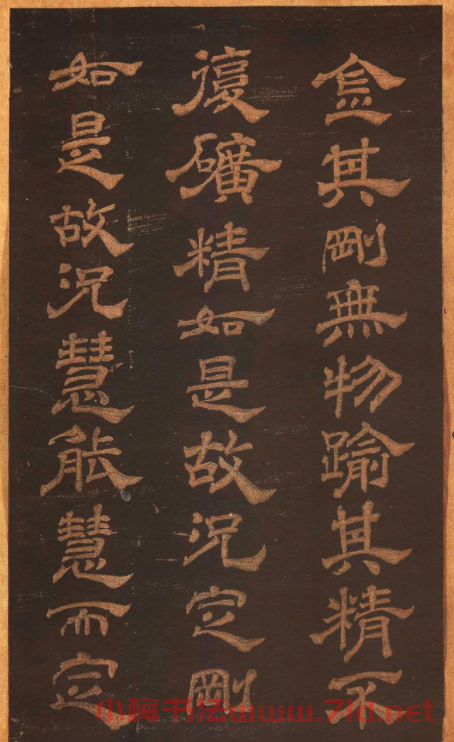 金其剛無物踰其精不
復礦精如是故況定剛
如是故況慧能慧而定
小梅书法